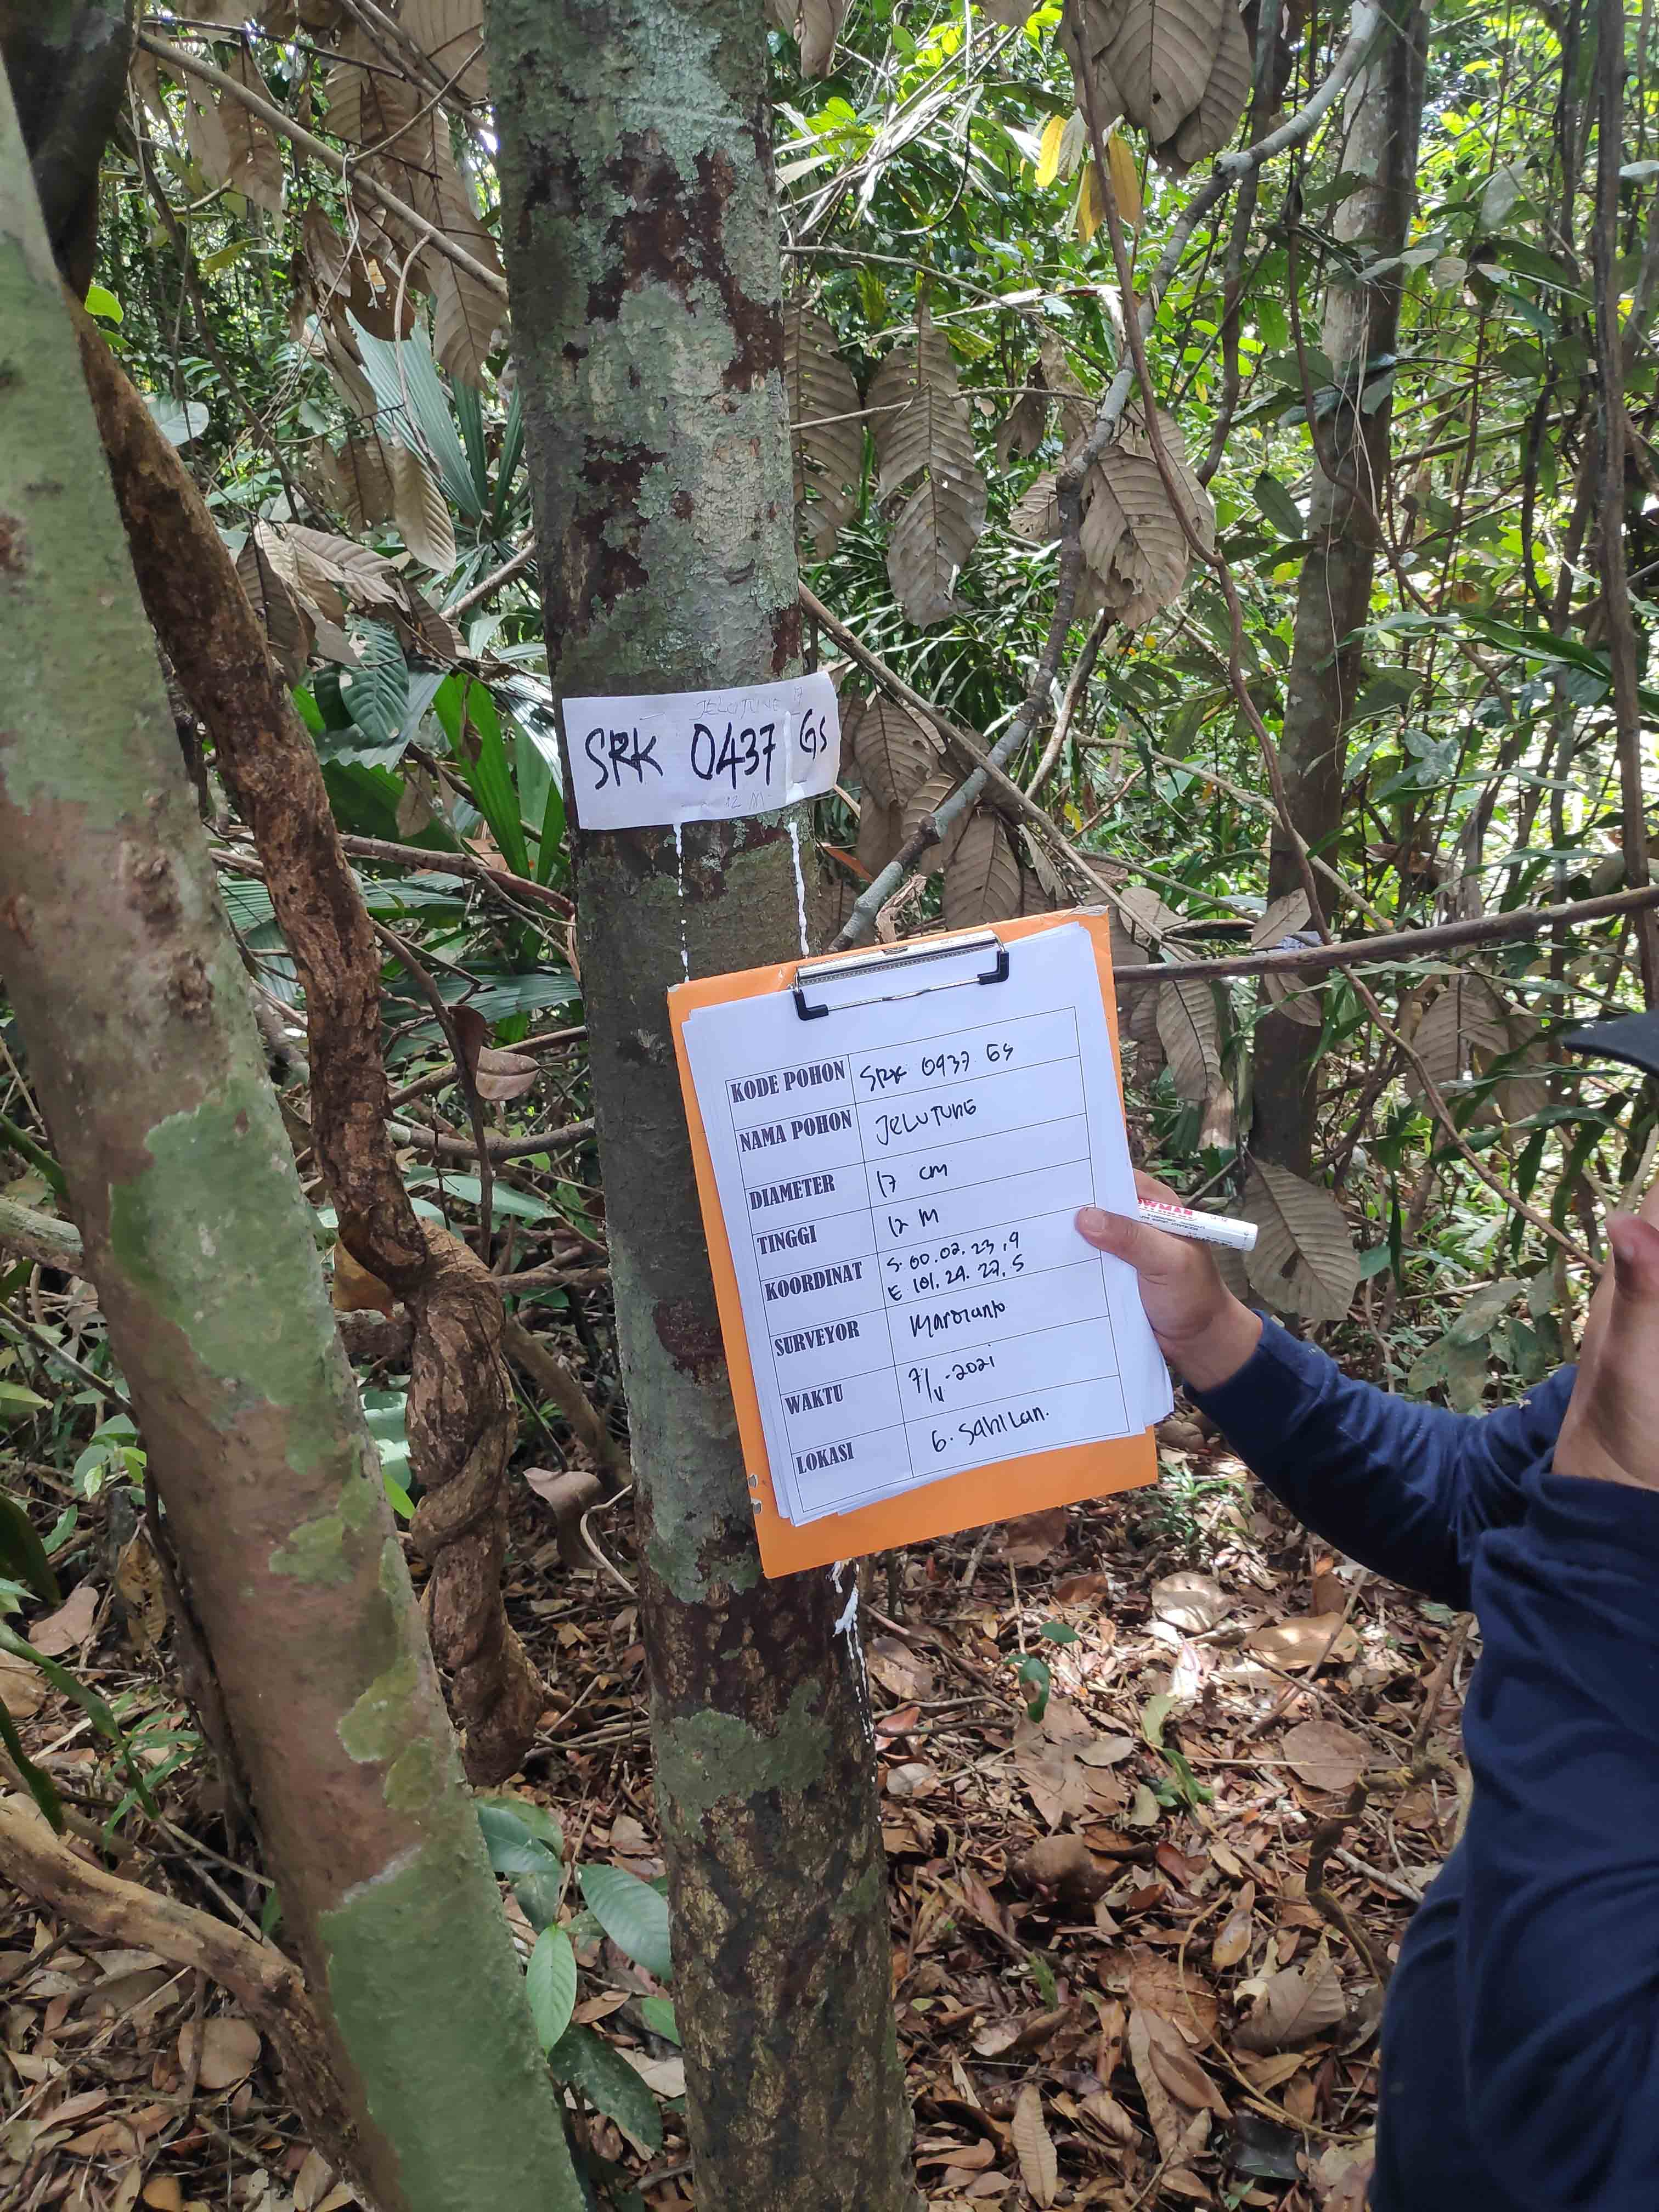 JELUTUNG 17
SRK 0437 GS
12 M
KODE POHON SRK 0437 GS
NAMA POHON JELUTUNG
DIAMETER 17 CM
TINGGI 12 M
KOORDINAT S. 00. 02. 23, 9
E 101, 29. 27, 5
SURVEYOR
WAKTU 7/V-2021
LOKASI G. Sahilan.